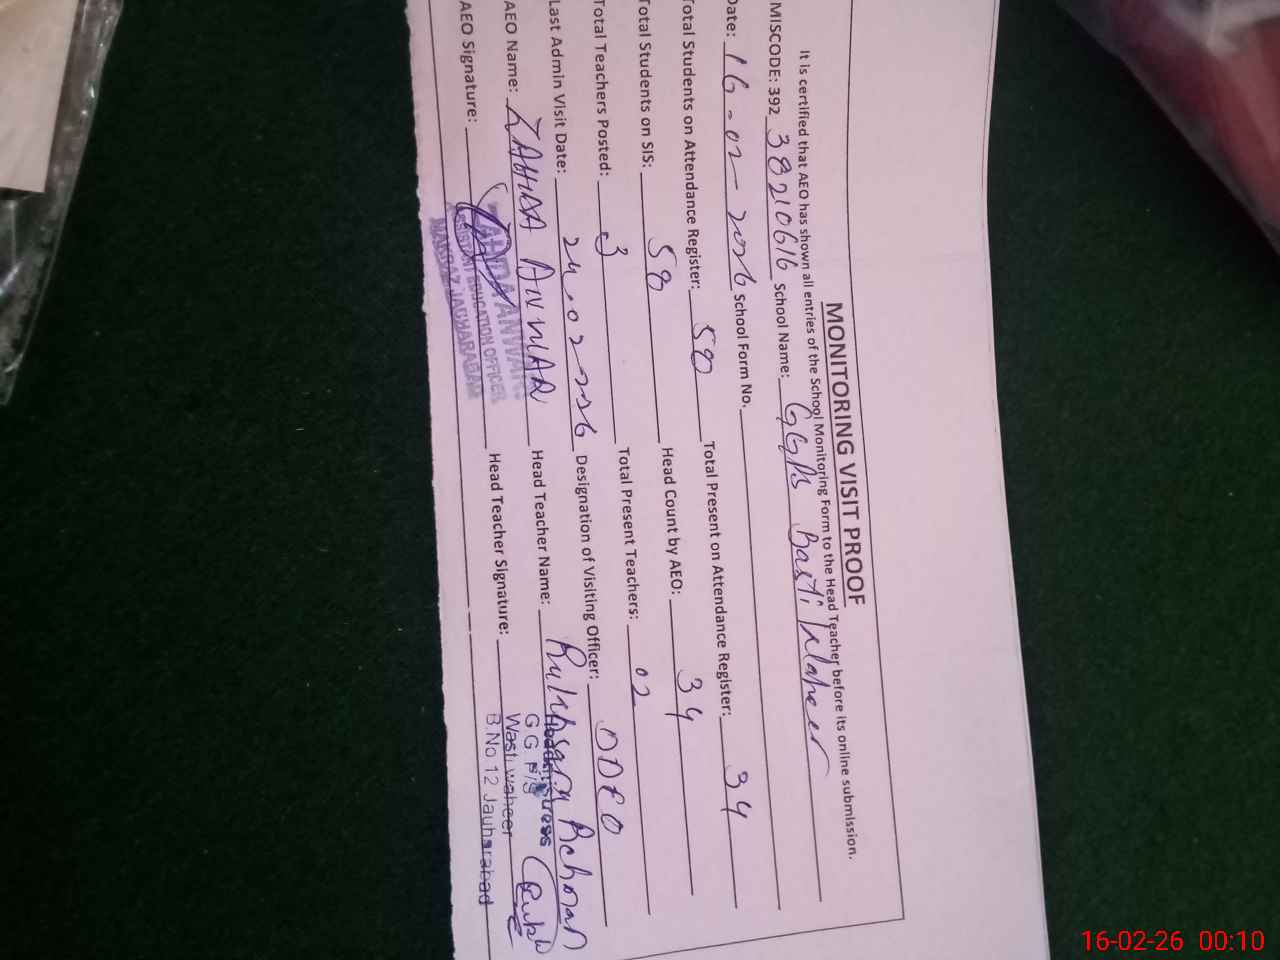 MONITORING VISIT PROOF
It is certified that AEO has shown all entries of the School Monitoring Form to the Head Teacher before its online submission.
MISCODE: 392 38210616 School Name: GGPS Basti Waheer
Date: 16-02-2026 School Form No.
Total Students on Attendance Register: 58 Total Present on Attendance Register: 34
Total Students on SIS: 58 Head Count by AEO: 34
Total Teachers Posted: 3 Total Present Teachers: 02
Last Admin Visit Date: 24.02 2026 Designation of Visiting Officer: DDEO
AEO Name: ZAHIDA ANWAR Head Teacher Name: Rukhsana Rehman
AEO Signature: Head Teacher Signature:
ZAHIDA ANWAR
ASSISTANT EDUCATION OFFICER
MARKAZ JAUHARABAD
Headmistress
G G P/S
Wasti waheer
B.No 12 Jauharabad
16-02-26 00:10